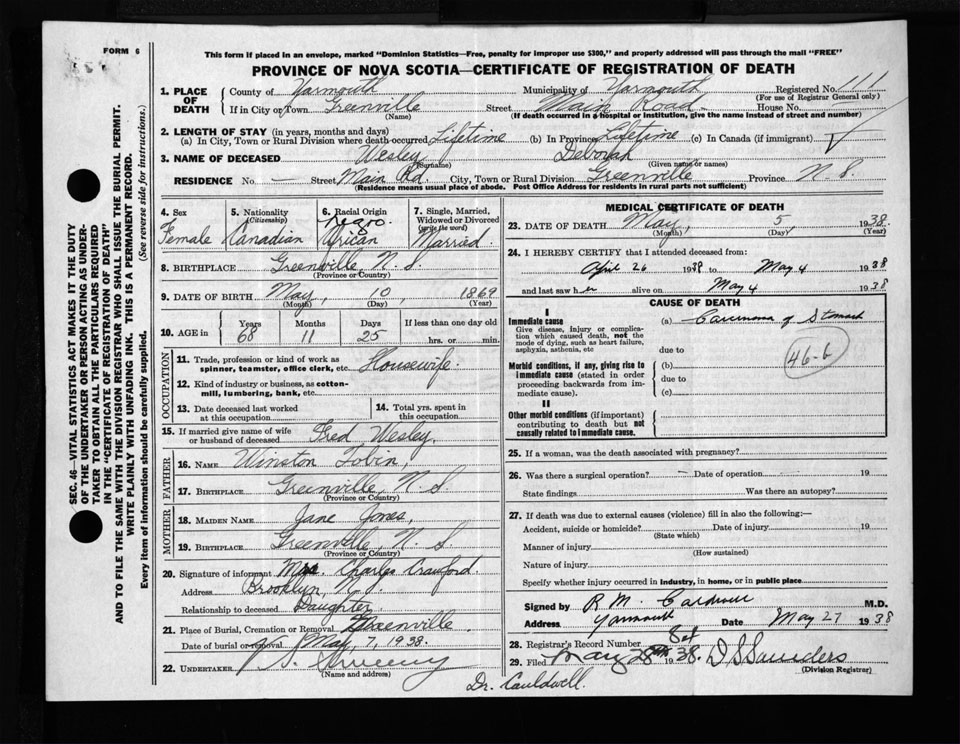 FORM 6
This form if placed in an envelope, marked "Dominion Statistics—Free, penalty for improper use $300," and properly addressed will pass through the mail "FREE"
PROVINCE OF NOVA SCOTIA—CERTIFICATE OF REGISTRATION OF DEATH
1. PLACE OF DEATH County of Yarmouth Municipality of Yarmouth Registered No. 111
(For use of Registrar General only)
If in City or Town Greenville Street Main Road House No.
(Name) (If death occurred in a hospital or institution, give the name instead of street and number)
2. LENGTH OF STAY (in years, months and days)
(a) In City, Town or Rural Division where death occurred Lifetime (b) In Province Lifetime (c) In Canada (if immigrant)
3. NAME OF DECEASED Wesley Deborah
(Surname) (Given name or names)
RESIDENCE No. — Street Main Rd. City, Town or Rural Division Greenville Province N. S.
(Residence means usual place of abode. Post Office Address for residents in rural parts not sufficient)
4. Sex Female
5. Nationality (Citizenship) Canadian
6. Racial Origin Negro. African
7. Single, Married, Widowed or Divorced (write the word) Married.
8. BIRTHPLACE Greenville, N. S
(Province or Country)
9. DATE OF BIRTH May, 10, 1869
(Month) (Day) (Year)
10. AGE in Years 68 Months 11 Days 25 If less than one day old hrs. or min.
OCCUPATION
11. Trade, profession or kind of work as spinner, teamster, office clerk, etc. Housewife.
12. Kind of industry or business, as cotton-mill, lumbering, bank, etc.
13. Date deceased last worked at this occupation
14. Total yrs. spent in this occupation
15. If married give name of wife or husband of deceased Fred Wesley.
FATHER
16. NAME Winston Tobin,
17. BIRTHPLACE Greenville, N. S
(Province or Country)
MOTHER
18. MAIDEN NAME Jane Jones,
19. BIRTHPLACE Greenville, N S
(Province or Country)
20. Signature of informant Mrs. Charles Crawford
Address Brooklyn, N.Y.
Relationship to deceased Daughter
21. Place of Burial, Cremation or Removal Greenville
Date of burial or removal May, 7, 1938.
22. UNDERTAKER V. S. Sweeny
(Name and address)
MEDICAL CERTIFICATE OF DEATH
23. DATE OF DEATH May, 5 1938.
(Month) (Day) (Year)
24. I HEREBY CERTIFY that I attended deceased from:
April 26 1938 to May 4 1938
and last saw her alive on May 4 1938
CAUSE OF DEATH
I
Immediate cause (a) Carcinoma of Stomach
Give disease, injury or complication which caused death, not the mode of dying, such as heart failure, asphyxia, asthenia, etc
due to
46-b
Morbid conditions, if any, giving rise to immediate cause (stated in order proceeding backwards from immediate cause). (b)
due to
(c)
II
Other morbid conditions (if important) contributing to death but not causally related to immediate cause.
25. If a woman, was the death associated with pregnancy?
26. Was there a surgical operation? — Date of operation — 19
State findings Was there an autopsy?
27. If death was due to external causes (violence) fill in also the following:—
Accident, suicide or homicide? Date of injury 19
(State which)
Manner of injury
(How sustained)
Nature of injury
Specify whether injury occurred in industry, in home, or in public place
Signed by R M M.D.
Address Yarmouth Date May 27 1938
28. Registrar's Record Number
29. Filed May 28th 1938. D S Saunders
(Division Registrar)
Dr. Cauldwell.
SEC. 46—VITAL STATISTICS ACT MAKES IT THE DUTY
OF THE UNDERTAKER OR PERSON ACTING AS UNDER-
TAKER TO OBTAIN ALL THE PARTICULARS REQUIRED
IN THE "CERTIFICATE OF REGISTRATION OF DEATH"
AND TO FILE THE SAME WITH THE DIVISION REGISTRAR WHO SHALL ISSUE THE BURIAL PERMIT.
WRITE PLAINLY WITH UNFADING INK. THIS IS A PERMANENT RECORD.
Every item of information should be carefully supplied. (See reverse side for instructions.)